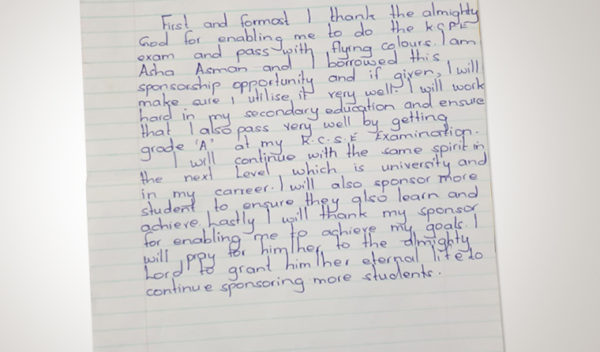 First and formost I thank the almighty
God for enabling me to do the K.C.P.E
exam and pass with flying colours. I am
Asha Asman and I borrowed this
sponsorship opportunity and if given, I will
make sure I utilise it very well. I will work
hard in my secondary education and ensure
that I also pass very well by getting
grade 'A' at my K.C.S.E Examination.
I will continue with the same spirit in
the next Level which is university and
in my carreer. I will also sponsor more
student to ensure they also learn and
achieve. Lastly I will thank my sponsor
for enabling me to achieve my goals. I
will pray for him/her to the almighty
Lord to grant him/her eternal life to
continue sponsoring more students.